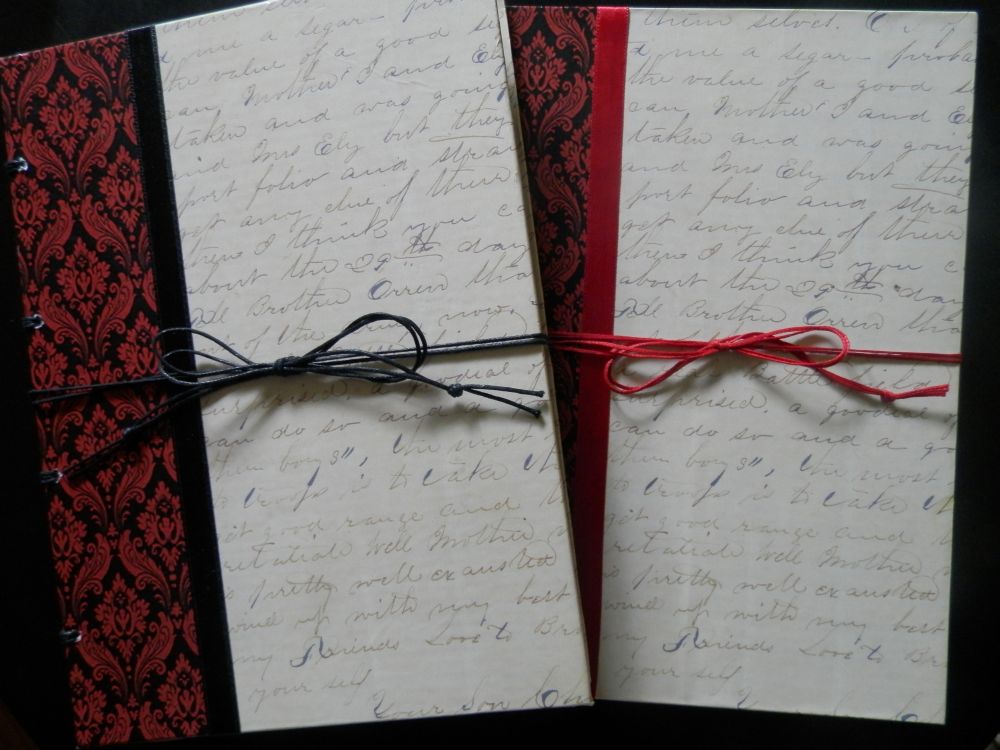 me a segar — prob
the value of a good se
can Mother I and Ely
taken and was going
and Mrs Ely but they
port folio and stran
get any clue of there
there I think you ca
about the 29th day
Brother Orren tho
of the now.
surprised. a goodeal of
can do so and a go
them boys", the most
to troops is to take
get good range and
retaliate Well Mother
is pretty well exausted
wind up with my best
my Friends Love to Br
your self
Your Son
them selves.
me a segar — proba
the value of a good s
can Mother I and E
taken and was goin
and Mrs Ely but they
port folio and stra
get any clue of there
there I think you c
about the 29th day
Brother Orren tho
Battlefield
surprised. a goodeal of
can do so and a go
them boys", the most
to troops is to take
get good range and
retaliate Well Mother
is pretty well exausted
wind up with my best
my Friends Love to Br
your self
Your Son